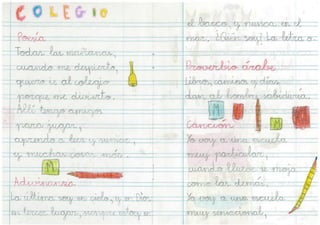 COLEGIO
Poesía
Todas las mañanas,
cuando me despierto,
quiero ir al colegio
porque me divierto.
Allí tengo amigos
para jugar,
aprendo a leer y sumar,
y muchas cosas más.
Adivinanza
La última soy en cielo, y en Dios
en tercer lugar, siempre estoy en
el barco, y nunca en el
mar. ¿Quién soy? La letra o.
Proverbio árabe
Libros, caminos y días
dan al hombre sabiduría.
M
M
Canción
Yo voy a una escuela
muy particular,
cuando llueve se moja
como las demás.
Yo voy a una escuela
muy sensacional,